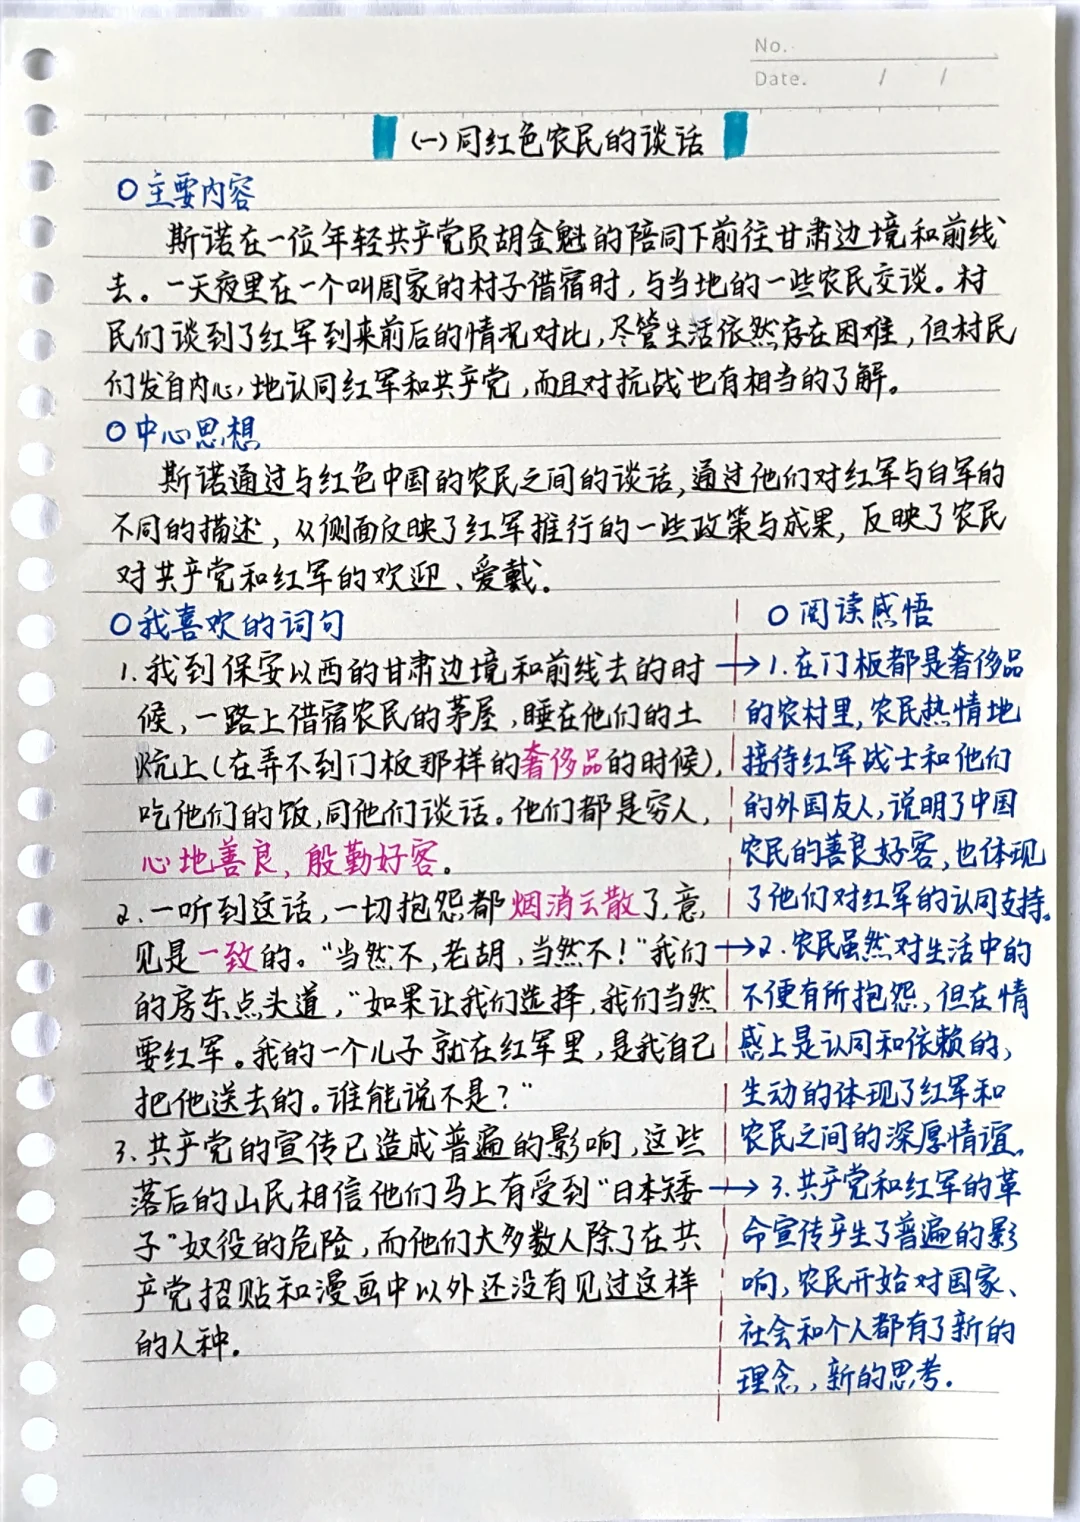 No.
Date. / /
(一)同红色农民的谈话
○主要内容
斯诺在一位年轻共产党员胡金魁的陪同下前往甘肃边境和前线
去。一天夜里在一个叫周家的村子借宿时,与当地的一些农民交谈。村
民们谈到了红军到来前后的情况对比,尽管生活依然存在困难,但村民
们发自内心地认同红军和共产党,而且对抗战也有相当的了解。
○中心思想
斯诺通过与红色中国的农民之间的谈话,通过他们对红军与白军的
不同的描述,从侧面反映了红军推行的一些政策与成果,反映了农民
对共产党和红军的欢迎、爱戴。
○我喜欢的词句
1.我到保安以西的甘肃边境和前线去的时
候,一路上借宿农民的茅屋,睡在他们的土
炕上(在弄不到门板那样的奢侈品的时候),
吃他们的饭,同他们谈话。他们都是穷人,
心地善良,殷勤好客。
2.一听到这话,一切抱怨都烟消云散了,意
见是一致的。“当然不,老胡,当然不!”我们
的房东点头道,“如果让我们选择,我们当然
要红军。我的一个儿子就在红军里,是我自己
把他送去的。谁能说不是?”
3.共产党的宣传已造成普遍的影响,这些
落后的山民相信他们马上有受到“日本矮
子”奴役的危险,而他们大多数人除了在共
产党招贴和漫画中以外还没有见过这样
的人种。
○阅读感悟
→1.在门板都是奢侈品
的农村里,农民热情地
接待红军战士和他们
的外国友人,说明了中国
农民的善良好客,也体现
了他们对红军的认同支持。
→2.农民虽然对生活中的
不便有所抱怨,但在情
感上是认同和依赖的,
生动的体现了红军和
农民之间的深厚情谊。
→3.共产党和红军的革
命宣传产生了普遍的影
响,农民开始对国家、
社会和个人都有了新的
理念,新的思考.